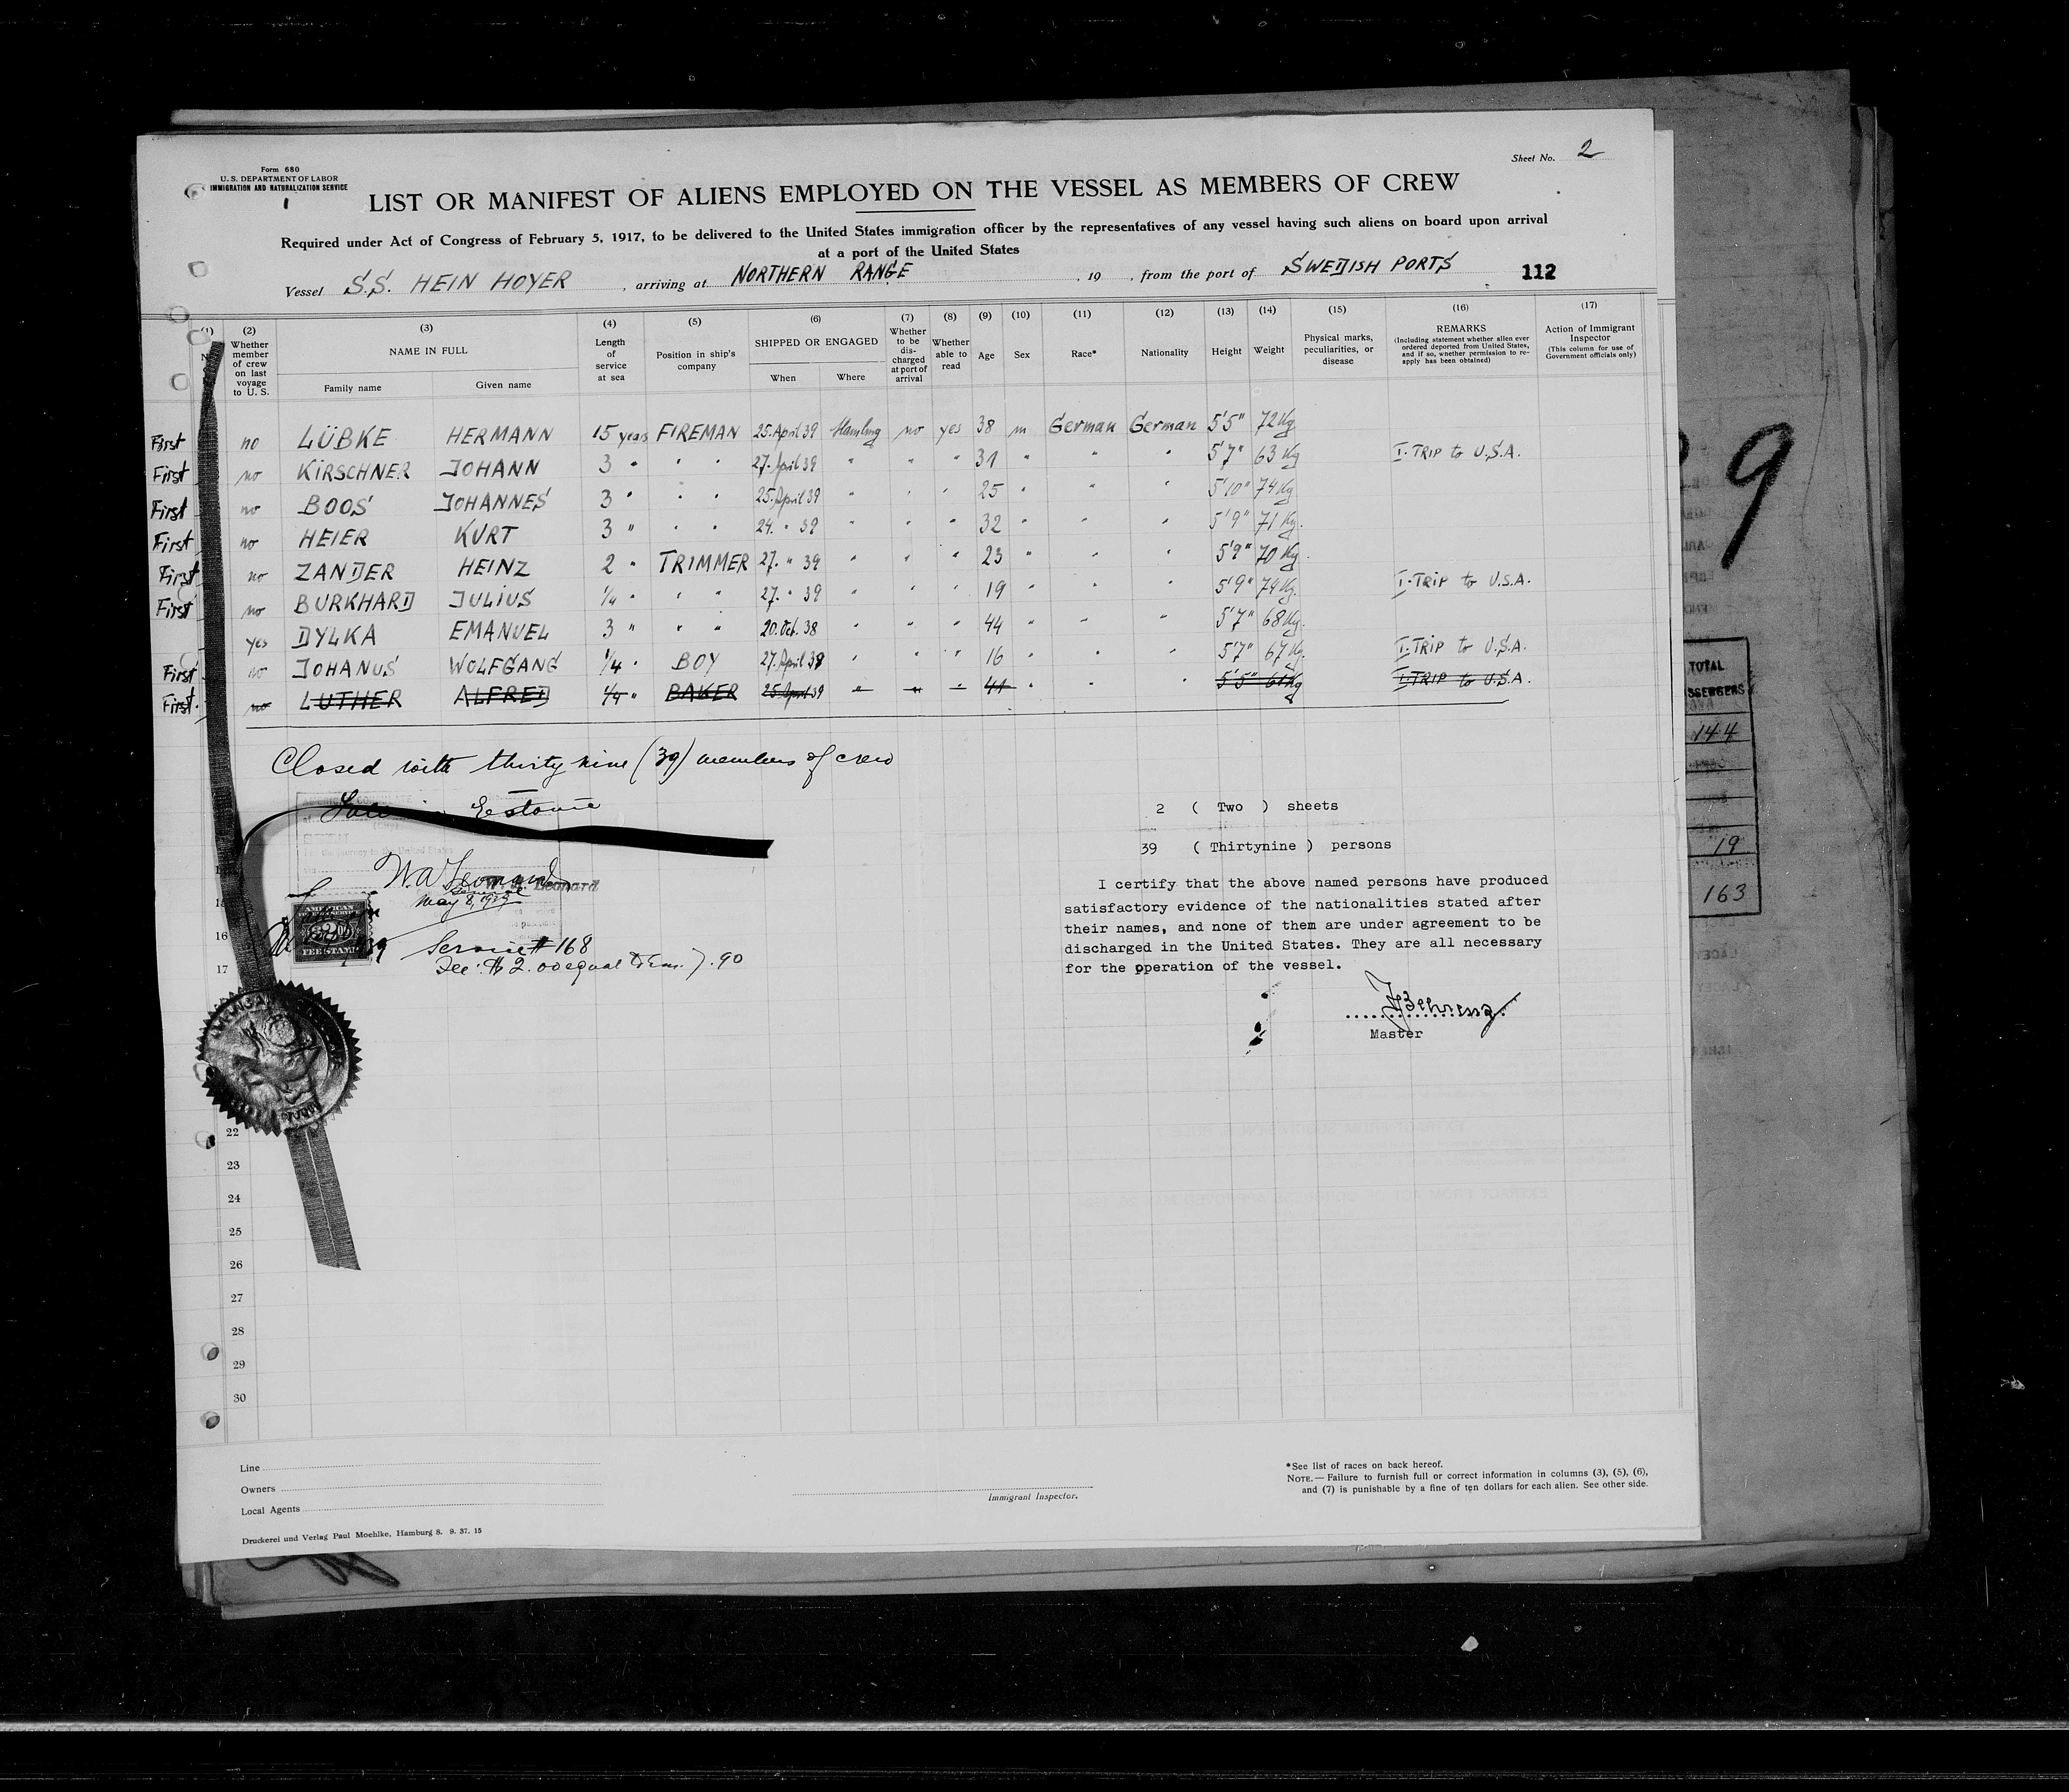 Sheet No. 2
Form 680
U. S. DEPARTMENT OF LABOR
IMMIGRATION AND NATURALIZATION SERVICE
LIST OR MANIFEST OF ALIENS EMPLOYED ON THE VESSEL AS MEMBERS OF CREW
Required under Act of Congress of February 5, 1917, to be delivered to the United States immigration officer by the representatives of any vessel having such aliens on board upon arrival
at a port of the United States
Vessel S.S. HEIN HOYER, arriving at NORTHERN RANGE, 19 , from the port of SWEDISH PORTS 112
(1) (2) (3) (4) (5) (6) (7) (8) (9) (10) (11) (12) (13) (14) (15) (16) (17)
Whether member of crew on last voyage to U. S.
NAME IN FULL
Family name Given name
Length of service at sea
Position in ship's company
SHIPPED OR ENGAGED
When Where
Whether to be discharged at port of arrival
Whether able to read
Age
Sex
Race*
Nationality
Height
Weight
Physical marks, peculiarities, or disease
REMARKS
(Including statement whether alien ever ordered deported from United States, and if so, whether permission to reapply has been obtained)
Action of Immigrant Inspector
(This column for use of Government officials only)
First no LÜBKE HERMANN 15 years FIREMAN 25.April 39 Hamburg no yes 38 m German German 5'5" 72 Kg
First no KIRSCHNER JOHANN 3 " " " 27.April 39 " " " 31 " " " 5'7" 63 Kg I.TRIP to U.S.A.
First no BOOS JOHANNES 3 " " " 25.April 39 " " " 25 " " " 5'10" 74 Kg
First no HEIER KURT 3 " " " 24. " 39 " " " 32 " " " 5'9" 71 Kg.
First no ZANDER HEINZ 2 " TRIMMER 27. " 39 " " " 23 " " " 5'9" 70 Kg.
First no BURKHARD JULIUS 1/4 " " " 27. " 39 " " " 19 " " " 5'9" 74 Kg. I.TRIP to U.S.A.
yes DYLKA EMANUEL 3 " " " 20.Oct. 38 " " " 44 " " " 5'7" 68 Kg.
First no JOHANUS WOLFGANG 1/4 " BOY 27.April 39 " " " 16 " " " 5'7" 67 Kg. I.TRIP to U.S.A.
First no LUTHER ALFRED 1/4 " BAKER 25.April 39 " " " 41 " " " 5'5" 61 Kg I.TRIP to U.S.A.
Closed with thirty nine (39) members of crew
Estonia
W.A. Leonard
W. A. Leonard
May 8, 1939
AMERICAN
FEE STAMP
Service # 168
Fee: $ 2.00 equal to Em. 7.90
2 ( Two ) sheets
39 ( Thirtynine ) persons
I certify that the above named persons have produced
satisfactory evidence of the nationalities stated after
their names, and none of them are under agreement to be
discharged in the United States. They are all necessary
for the operation of the vessel.
Master
16
17
22
23
24
25
26
27
28
29
30
Line
Owners
Local Agents
Immigrant Inspector.
*See list of races on back hereof.
NOTE.— Failure to furnish full or correct information in columns (3), (5), (6),
and (7) is punishable by a fine of ten dollars for each alien. See other side.
Druckerei und Verlag Paul Moehlke, Hamburg 8. 9. 37. 15
9
TOTAL
144
19
163